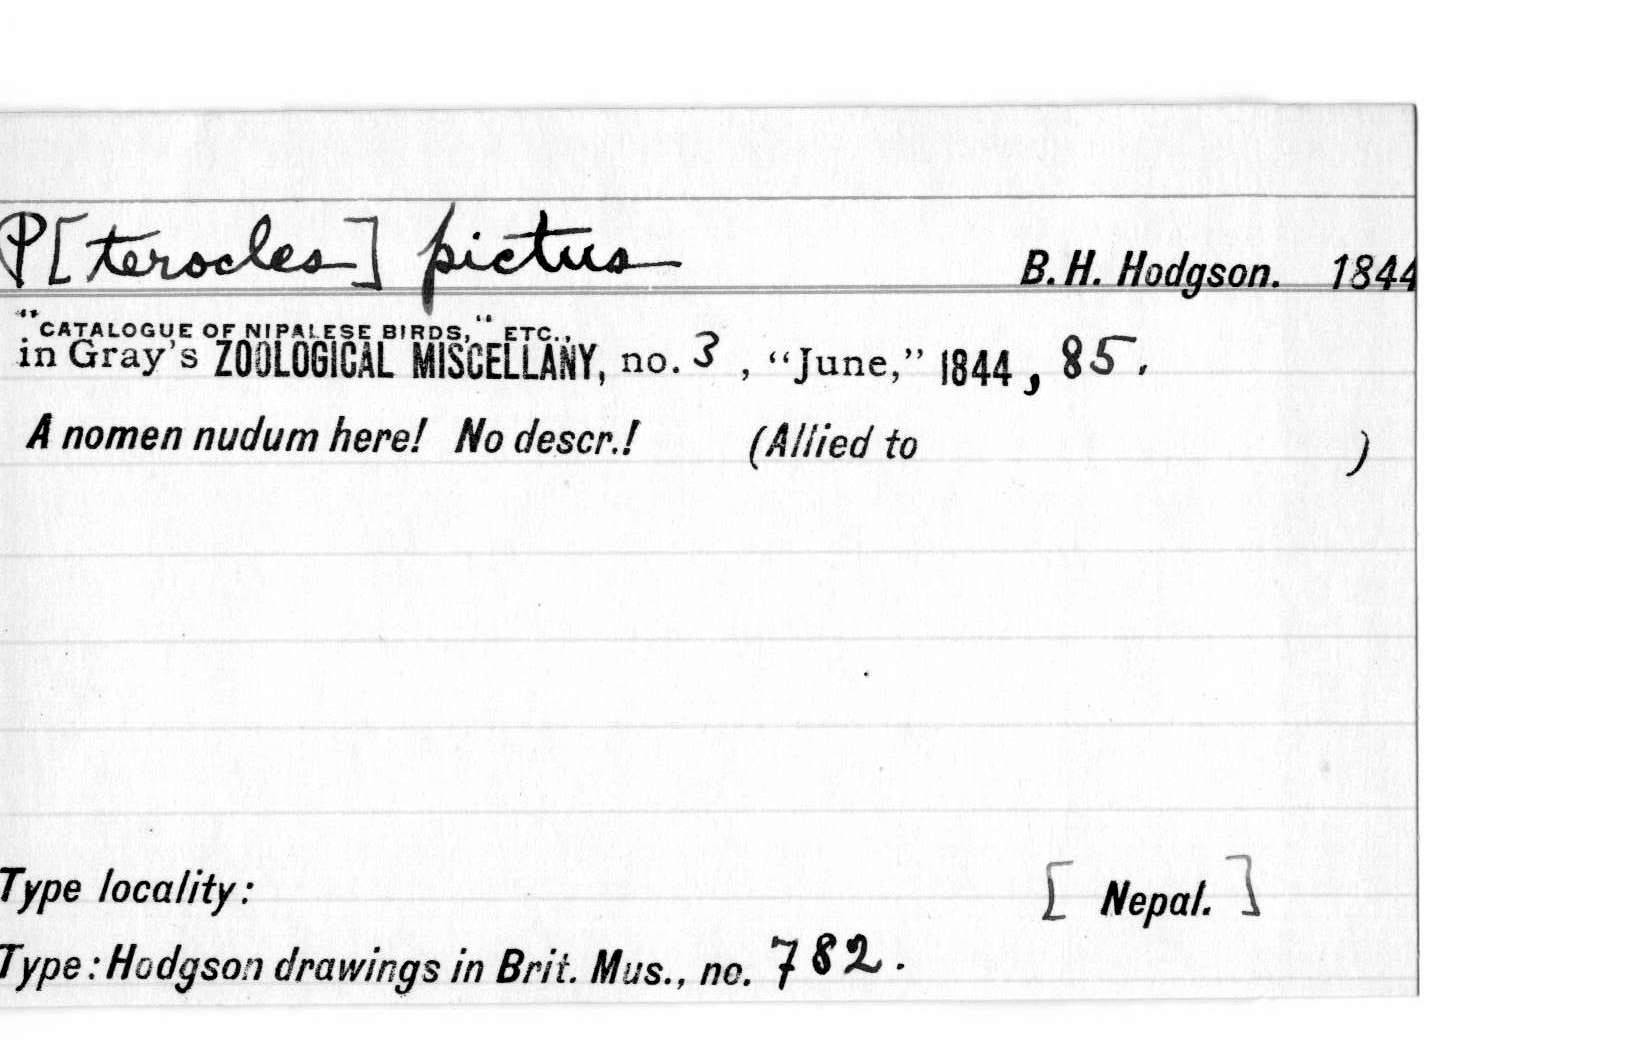 P[terocles] pictus B. H. Hodgson. 1844
"CATALOGUE OF NIPALESE BIRDS," ETC.,
in Gray's ZOOLOGICAL MISCELLANY, no. 3, "June," 1844, 85.
A nomen nudum here! No descr.! (Allied to )
Type locality: [Nepal.]
Type: Hodgson drawings in Brit. Mus., no. 782.